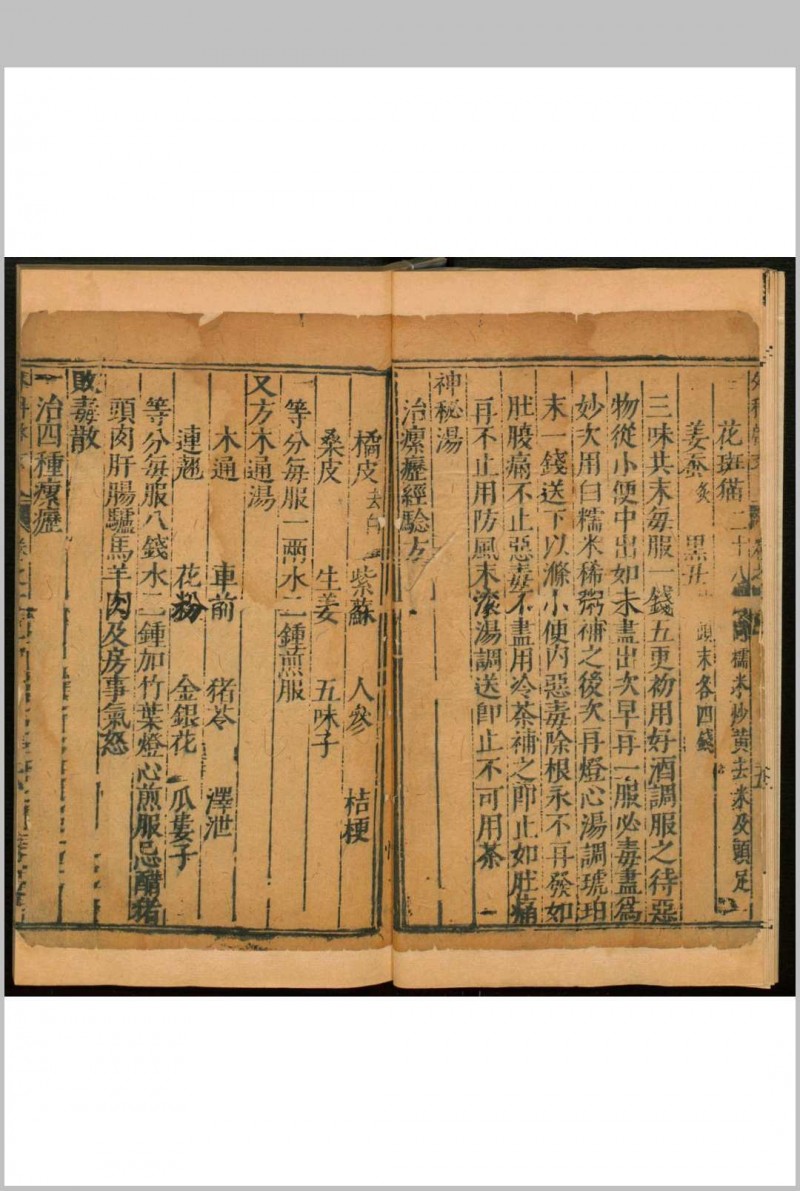 花斑猫二十八 糯米炒黄去米及頭足
姜蚕炙 黑丑頭末各四錢
三味共末每服一錢五更初用好酒調服之待惡
物從小便中出如未盡出次早再一服必毒盡爲
妙次用白糯米稀粥補之後次再燈心湯調琥珀
末一錢送下以滌小便内惡毒除根永不再發如
肚腹痛不止惡毒不盡用冷茶補之即止如肚痛
再不止用防風末滚湯調送即止不可用茶
神秘湯
治瘰癧經驗方
橘皮去白 紫蘇 人參 桔梗
桑皮 生姜 五味子
等分每服一兩水二鍾煎服
又方木通湯
木通 車前 猪苓 澤泄
連翹 花粉 金銀花 瓜蔞子
等分每服八錢水二鍾加竹葉燈心煎服忌醋猪
頭肉肝腸驢馬羊肉及房事氣怒
敗毒散
治四種瘰癧